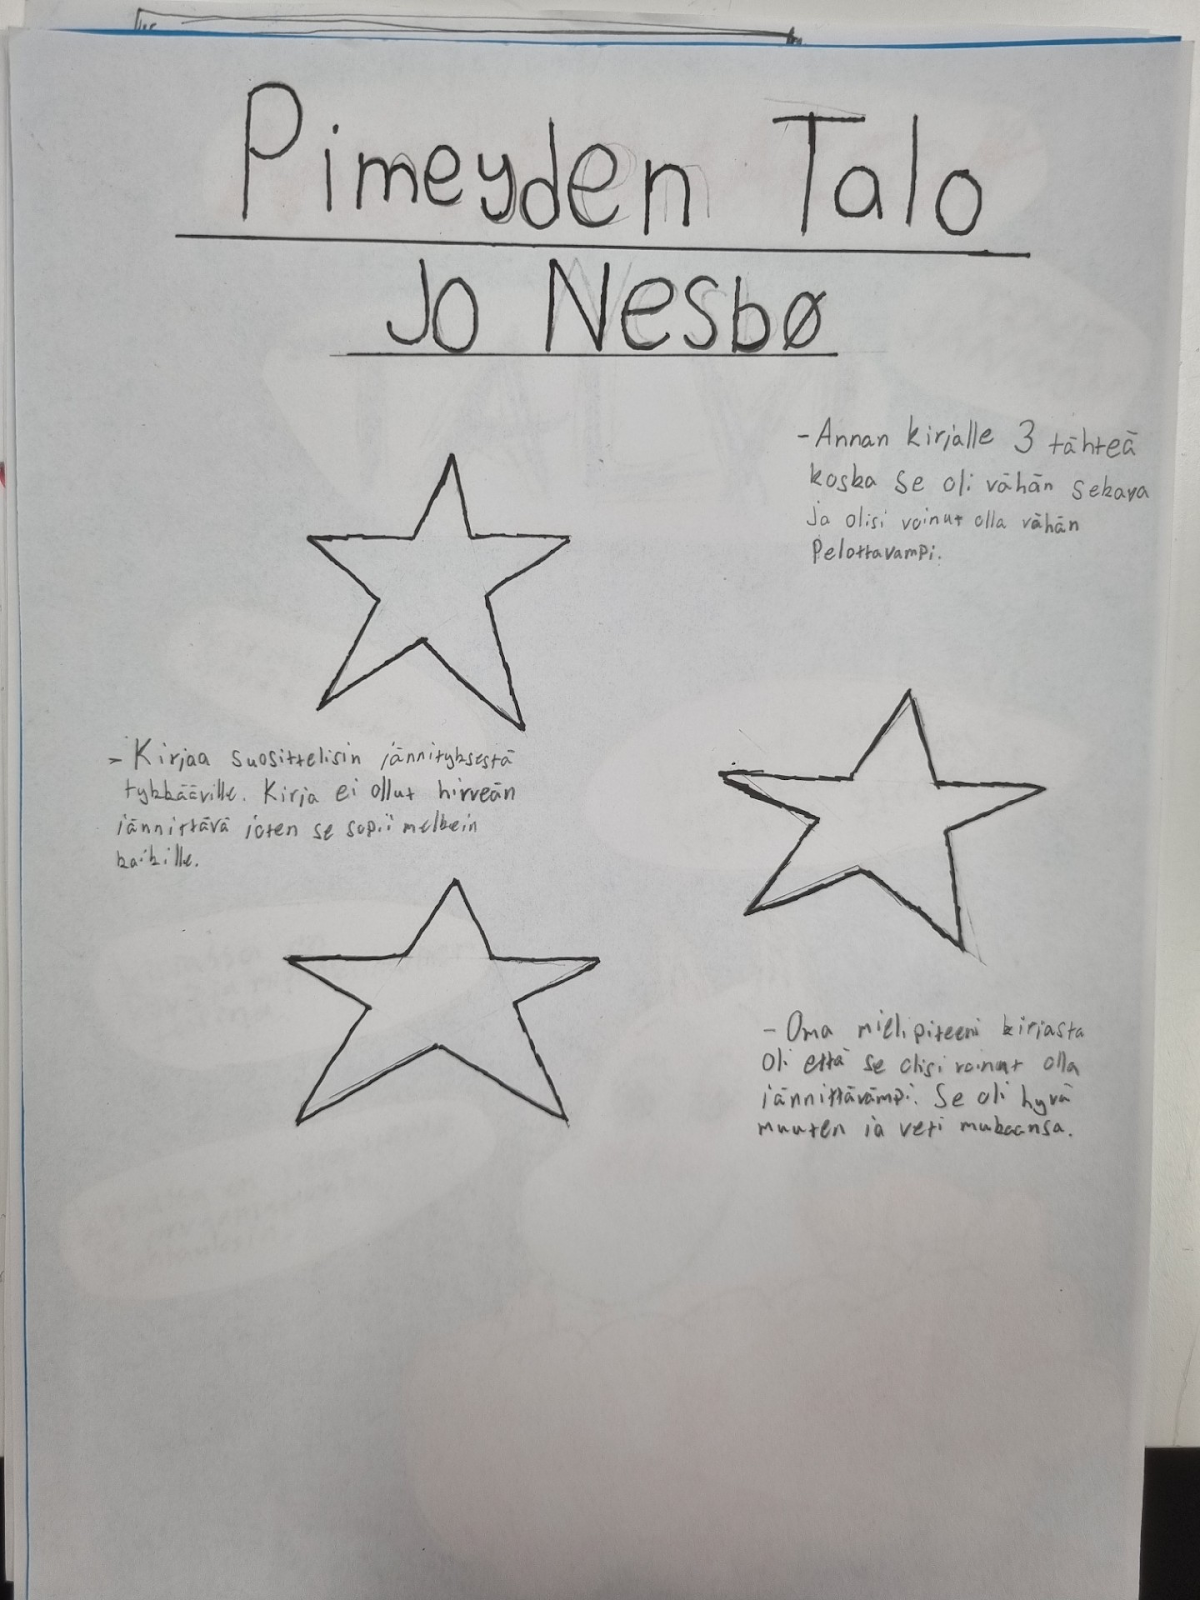 Pimeyden Talo
Jo Nesbø
- Annan kirjalle 3 tähteä
koska se oli vähän sekava
ja olisi voinut olla vähän
Pelottavampi.
- Kirjaa suosittelisin jännityksestä
tykkääville. Kirja ei ollut hirveän
jännittävä joten se sopii melkein
kaikille.
- Oma mielipiteeni kirjasta
oli että se olisi voinut olla
jännittävämpi. Se oli hyvä
muuten ja veti mukaansa.